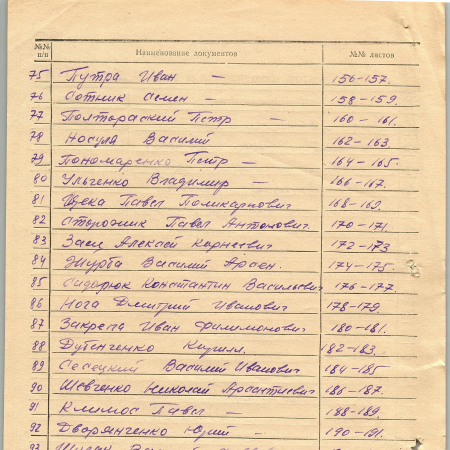 №№ п/п Наименование документов №№ листов
75 Путра Иван — 156-157.
76 Сотник Семен — 158-159.
77 Полтораский Петр — 160-161.
78 Носуля Василий 162-163
79 Пономаренко Петр — 164-165.
80 Ульченко Владимир — 166-167.
81 Щека Павел Поликарпович 168-169
82 Сторожик Павел Антонович 170-171.
83 Заец Алексей Корнеевич 172-173
84 Журба Василий Арсен. 174-175.
85 Сидорюк Константин Васильевич 176-177.
86 Нога Дмитрий Иванович 178-179.
87 Закрепа Иван Филимонович 180-181.
88 Дубенченко Кирилл. 182-183.
89 Сесецкий Василий Иванович 184-185
90 Шевченко Николай 186-187.
91 Климос Павел — 188-189.
92 Дворянченко Юрий — 190-191.
93